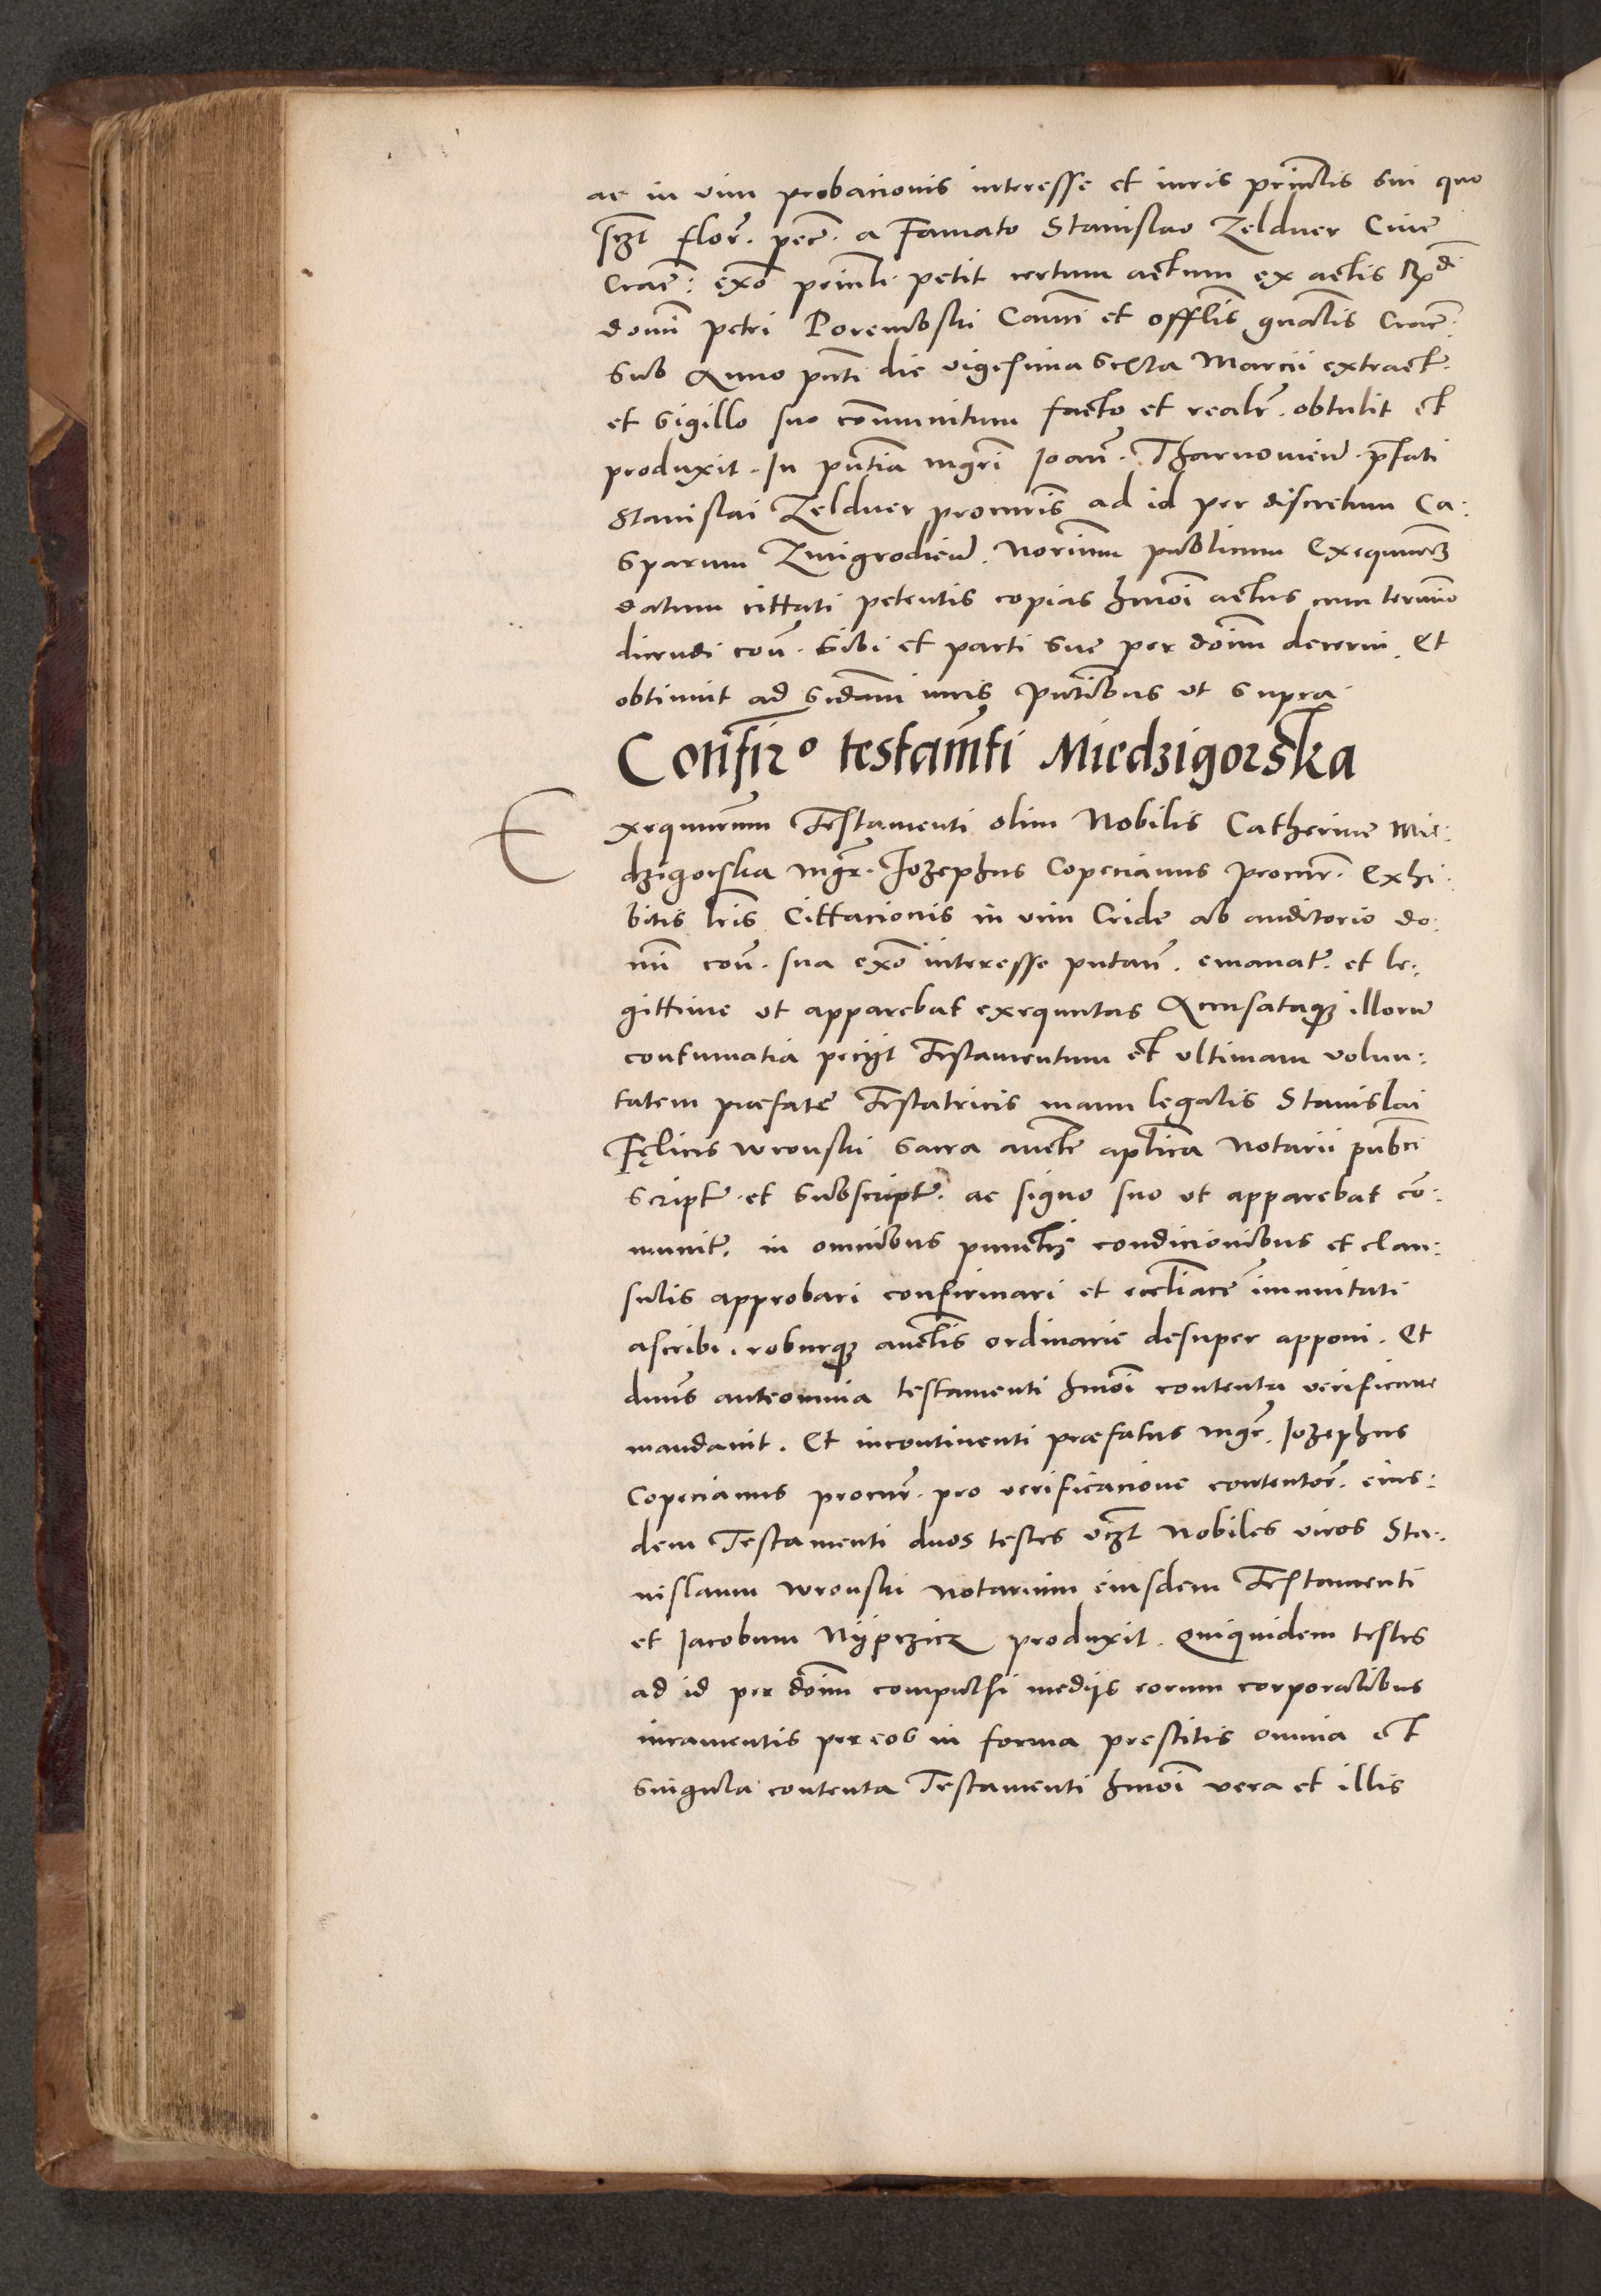 ac in vim probacionis interesse et iuris prin̄clis sui quo
sczt florē. pec̄. a Famato Stanislao Zeldner Ciue
Crac̄: exo͞ prin̄li petit certum actum ex actis Rdi
dom̄ petri Porembski Can̄ci et offlis gn̄alis Crac̄.
Sub Anno pn̄ti die vigesima sexta Marcii extract̄.
et Sigillo suo co͞munitum facto et realr̄. obtulit et
produxit. In pn̄tia mgr̄i Ioan̄. Tharnouien̄. pfati
Stanislai Zeldner procuris ad id per discretum Ca:
sparum Zmigrodien̄. Norium publicum Exequut
datum cittati petentis copias hmōi actus cum termino
dicendi con̄. Sibi et parti sue per doīm decerni. Et
obtinuit ad sidam iuris pn̄tibus vt supra.
Confir⁰ testam̄ti Miedzigorska
Exequutorum Testamenti olim Nobilis Catherine Mie:
dzigorska mgr̄. Iozephus Copecianus procur̄. Exhi:
bitis lris Cittacionis in vim Cride ab auditorio do:
mi con̄. sua exo͞ interesse putan̄. emanat̄. et le:
gittime vt apparebat exequutas Accusataqȝ illorū
contumatia peciit Testamentum et vltimam volun:
tatem præfatē Testatricis manu legalis Stanislai
Fęlicis wronski sacra auctē aplica Notarii pubci
script̄. et subscript̄. ac signo suo vt apparebat co͞:
munit̄. in omnibus punctis condicionibus et clau:
sulis approbari confirmari et eccliacē imunitati
ascribi. roburqȝ auctis ordinarie desuper apponi. Et
dn̄us anteomnia testamenti hmōi contenta verificare
mandauit. Et incontinenti præfatus mgr̄. Iozephus
Copecianus procur̄. pro verificacione contentor̄. eius:
dem Testamenti duos testes vczt Nobiles viros Sta:
nislaum wronski notarium eiusdem Testamenti
et Iacobum Nÿpczicz produxit. Quiquidem testes
ad id per doīm compulsi medÿs eorum corporalibus
iuramentis per eos in forma prestitis omnia et
singula contenta Testamenti hmōi vera et illis